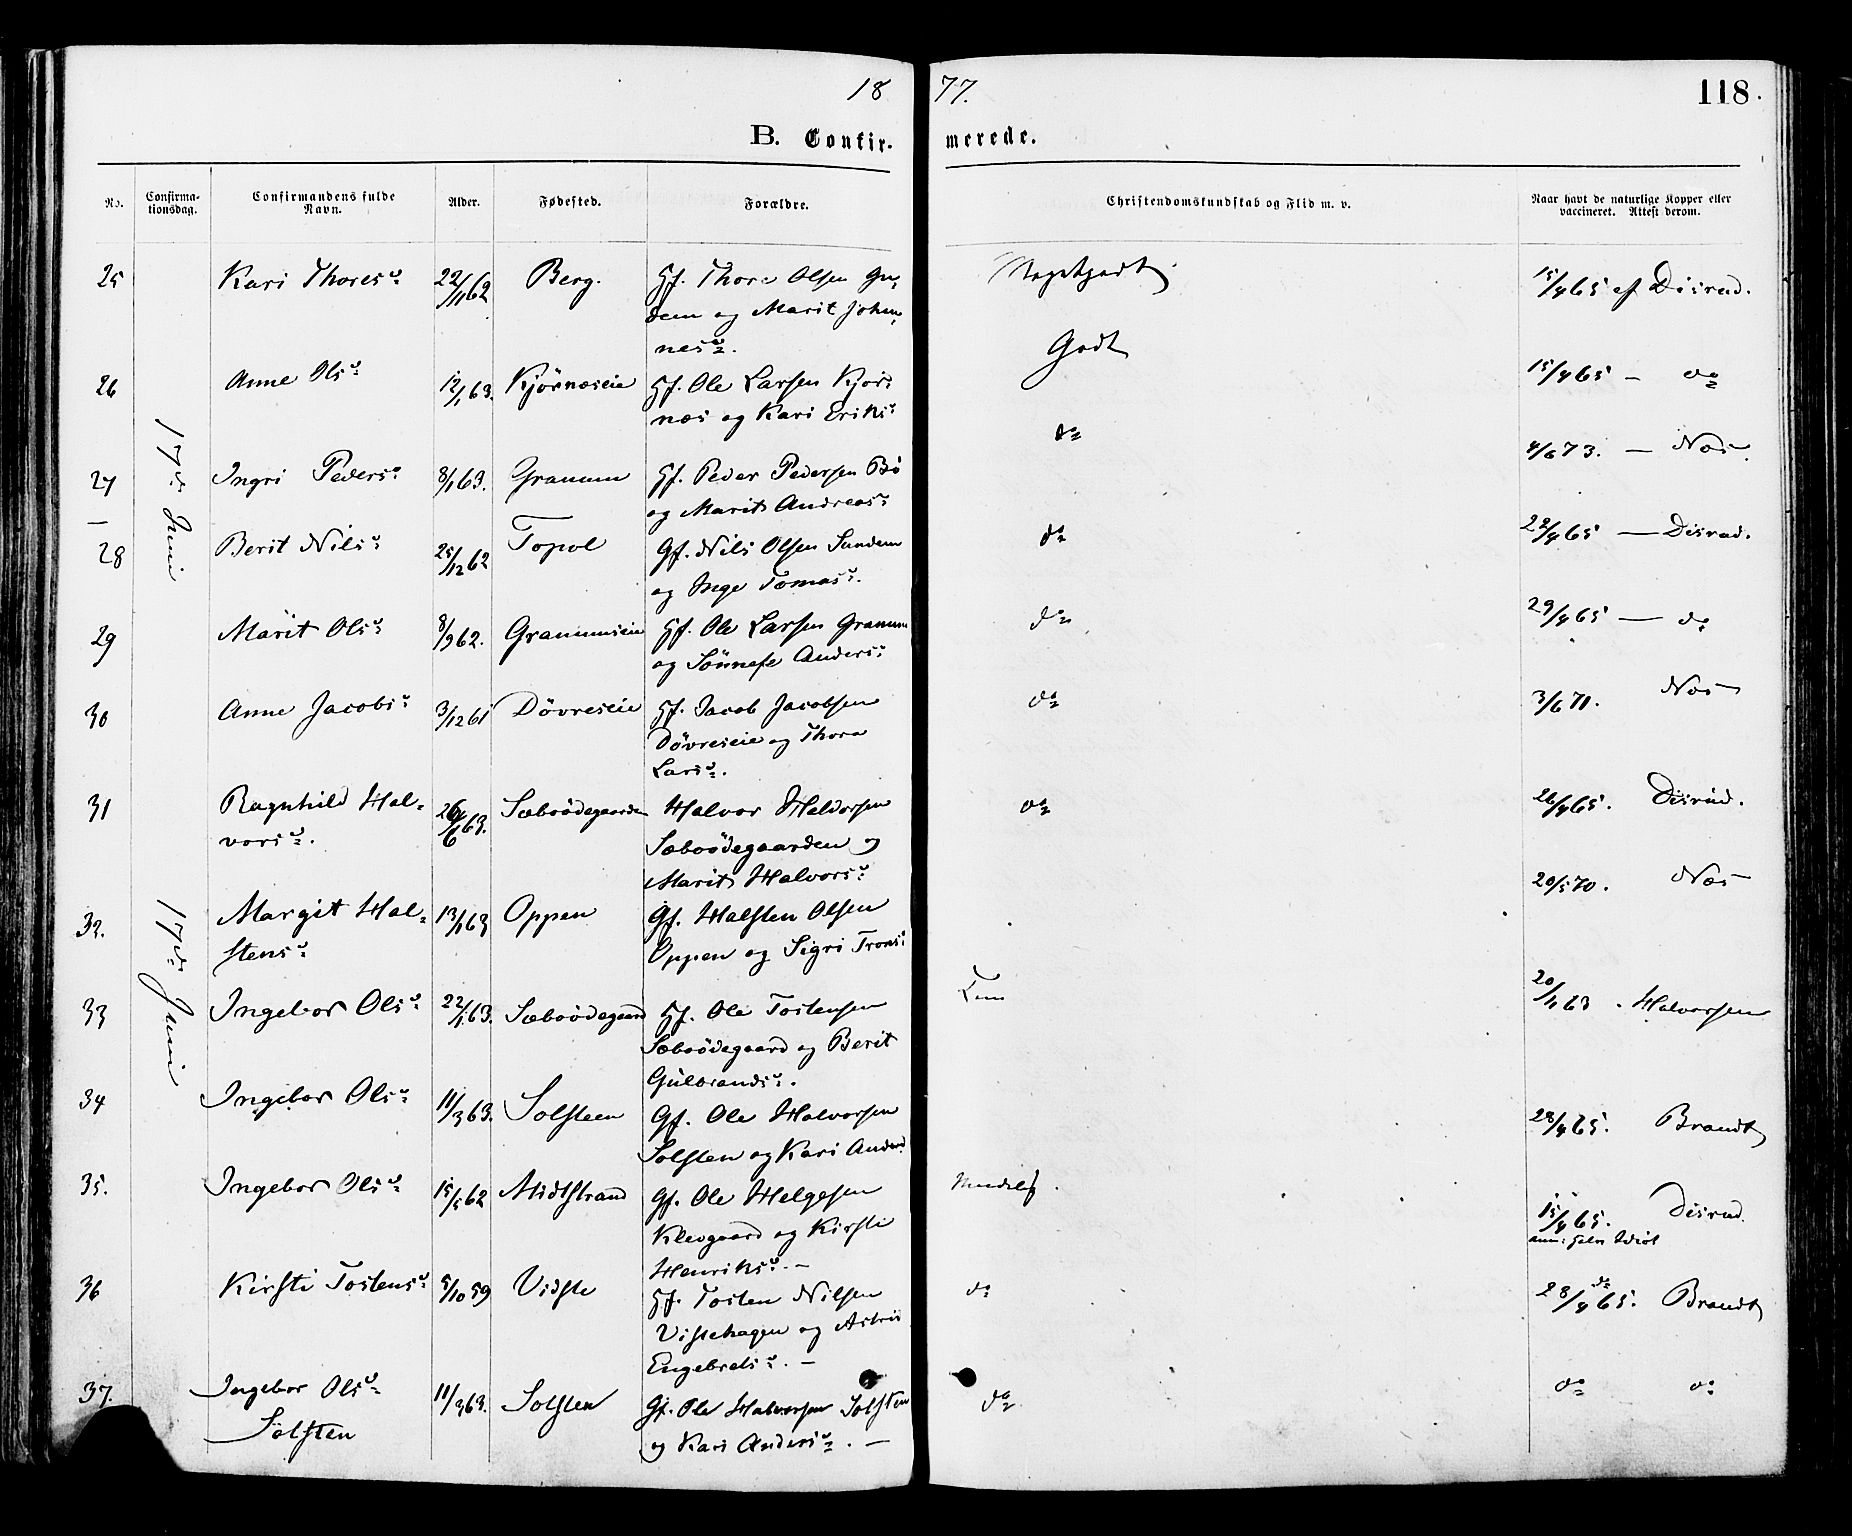 18 77. 118.
B. Confir- merede.
No. Confirma-tionsdag. Confirmandens fulde Navn. Alder. Fødested. Forældre. Christendomskundskab og Flid m. v. Naar havt de naturlige Kopper eller vaccineret. Attest derom.
17de Juni
25 Kari Thoresd: 22/1 62 Berg. Gf. Thore Olsen Gu- Meget godt 15/4 65 af Disrud.
dem og Marit Johan-
nesd:.
26 Anne Olsd: 12/1 63. Kjörnæseie Gf. Ole Larsen Kjör- Godt 15/4 65 – do
næs og Kari Eriksd:
27 Ingri Pedersd: 8/1 63. Granum Gf. Peder Pedersen Bö do 4/6 73. — Næs.
og Marit Andreasd:
28 Berit Nilsd: 25/12 62 Topol Gf. Nils Olsen Sundem do 22/4 65 — Disrud.
og Inge Tomasd:.
29 Marit Olsd: 8/9 62. Granumseie Gf. Ole Larsen Granum do 29/4 65 — do
og Sönnefe Andersd:
30 Anne Jacobsd: 3/12 61 Dövreseie Gf. Jacob Jacobsen do 3/6 71. Næs
Dövreseie og Thora
Larsd:.
31 Ragnhild Hal- 26/6 63. Sæboödegaarden Halvor Halvorsen do 26/4 65. Disrud.
vorsd:. Sæboödegaarden og
Marit Halvorsd:
17de Juni
32. Margit Hal- 13/1 63 Oppen Gf. Halsten Olsen 20/5 70. Næs
stensd: Oppen og Sigri Tronsd:
33 Ingebor Olsd: 22/1 63. Sæboödegaard Gf. Ole Tostensen 20/11 63. Halvorsen
Sæboödegaard og Berit
Gulbrandsd:.
34 Ingebor Olsd: 11/3 63. Solsteen Gf. Ole Halvorsen 28/4 65. Brandt
Solsten og Kari Andersd
35. Ingebor Olsd: 15/5 62 Midtstrand Gf. Ole Helgesen Maadelig. 15/4 65. Disrud.
Klevgaard og Kirsti anm: halv Idiot
Henriksd:. –
36 Kirsti Tostensd: 5/10 59 Vidste Gf. Tosten Nilsen do do 28/4 65. Brandt
Vistehagen og Astrid
Engebretsd:. –
37. Ingebor Olsd: 11/3 63. Solsten Gf. Ole Halvorsen Solsten do do do
Solsten og Kari Andersd:. –